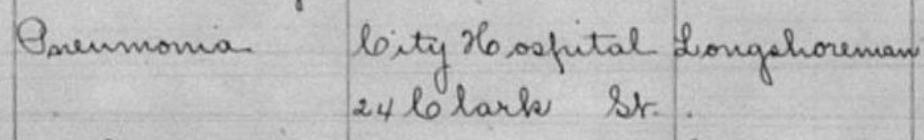 Pneumonia City Hospital Longshoreman
24 Clark St.